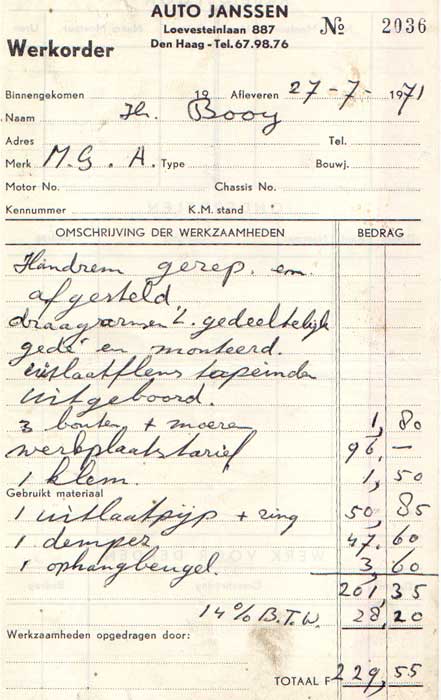 AUTO JANSSEN
Loevesteinlaan 887
Den Haag - Tel. 67.98.76
No 2036
Werkorder
Binnengekomen 19 Afleveren 27-7-1971
Naam Hr. Booy
Adres Tel.
Merk M.G.A. Type Bouwj.
Motor No. Chassis No.
Kennummer K.M. stand
OMSCHRIJVING DER WERKZAAMHEDEN BEDRAG
Handrem gerep. en
afgesteld.
draagarmen L. gedeeltelijk
gede en monteerd.
uitlaatflens tapeinden
uitgeboord.
3 bouten + moeren 1,80
werkplaatstarief 96,-
1 klem. 1,50
Gebruikt materiaal
1 uitlaatpijp + ring 50,85
1 demper 47.60
1 ophangbeugel. 3,60
201,35
14% B.T.W. 28,20
Werkzaamheden opgedragen door:
TOTAAL F 229,55